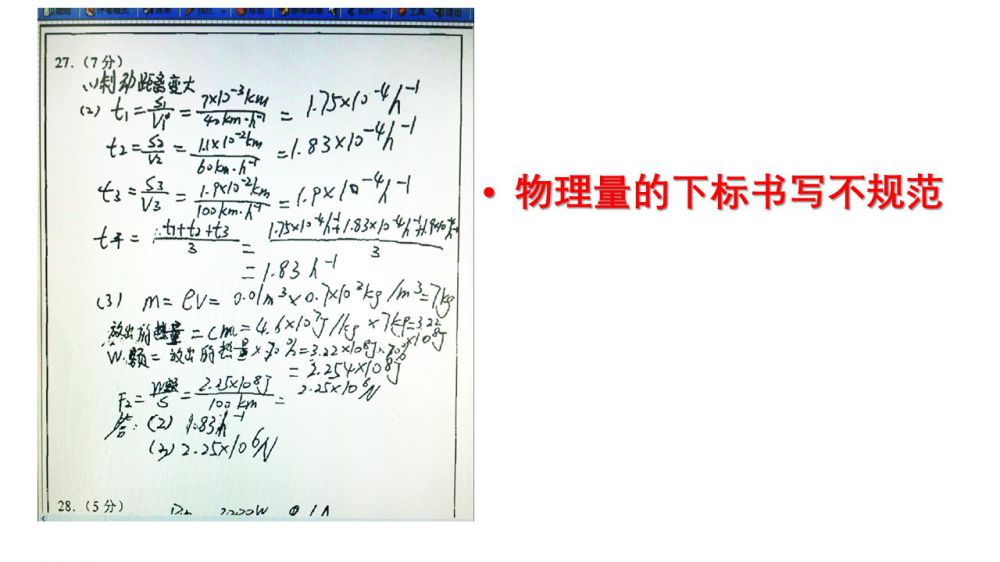 27.（7分）
(1)制动距离变大
(2) t₁=S₁/V₁=7×10⁻³km/40km·h⁻¹=1.75×10⁻⁴h⁻¹
t₂=S₂/V₂=1.1×10⁻²km/60km·h⁻¹=1.83×10⁻⁴h⁻¹
t₃=S₃/V₃=1.9×10⁻²km/100km·h⁻¹=1.9×10⁻⁴h⁻¹
• 物理量的下标书写不规范
t平=t₁+t₂+t₃/3=1.75×10⁻⁴h⁻¹+1.83×10⁻⁴h⁻¹+1.9×10⁻⁴h⁻¹/3
=1.83h⁻¹
(3) m=ρV=0.01m³×0.7×10³kg/m³=7kg
放出的热量=cm=4.6×10⁷J/kg×7kg=3.22×10⁸J
W额=放出的热量×70%=3.22×10⁸J×70%
=2.254×10⁸J
F₂=W额/S=2.25×10⁸J/100km=2.25×10⁶N
答：(2) 1.83h⁻¹
(3) 2.25×10⁶N
28.（5分）